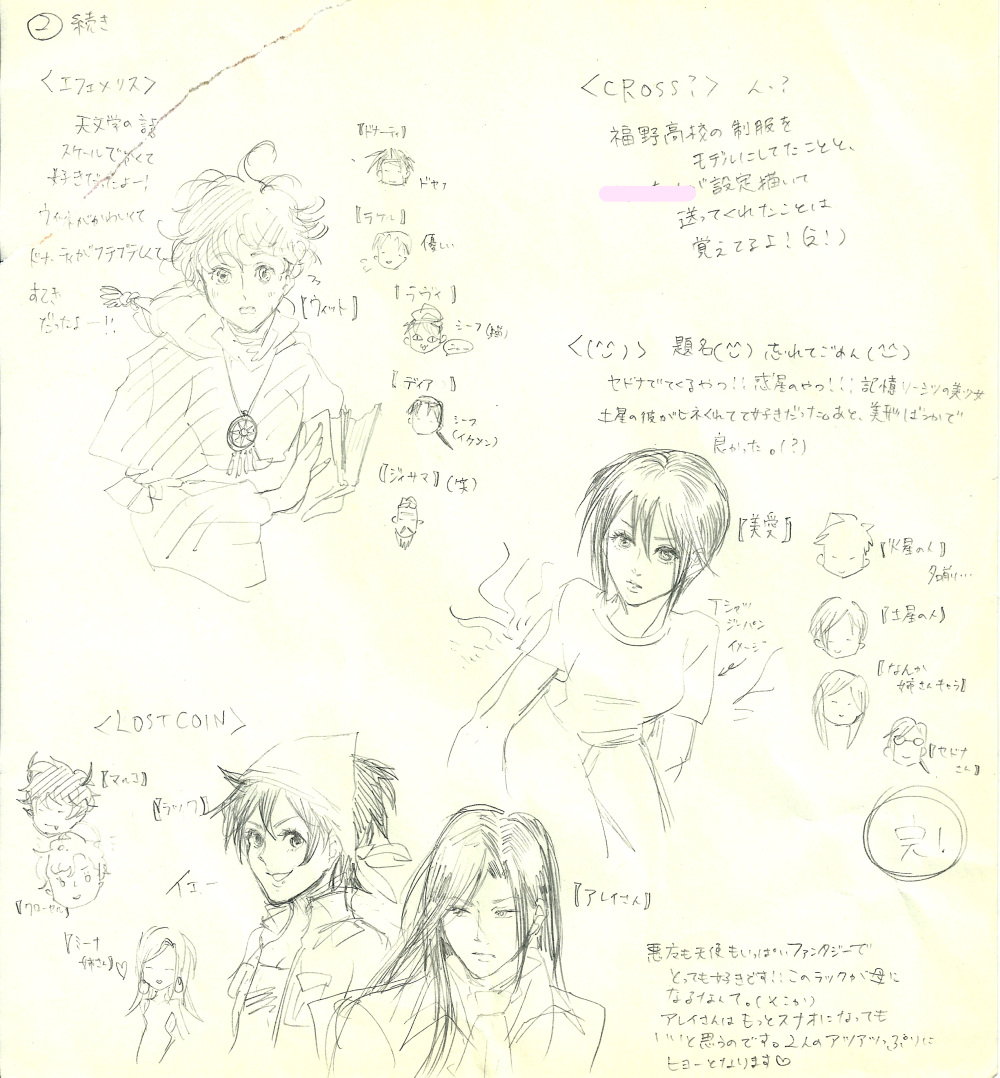 ② 続き
〈エフェメリス〉
天文学の話
スケールでかくて
好きだったよー!
ウィットがかわいくて
ドナーティがフテブテしくて
すてき
だったよー!!
『ウィット』
『ドナーティ』
ドヤァ
『ラケル』
優しい
『ラヴィ』
シーフ(猫)
ニャー
『ディア』
シーフ
(イケメン)
『ジィサマ』(笑)
〈CROSS?〉 ん?
福野高校の制服を
モデルにしてたことと、
が設定描いて
送ってくれたことは
覚えてるよ!(え!)
〈(^^)〉 題名(^^) 忘れてごめん(^^)
セドナでてくるやつ!!惑星のやつ!!!記憶ソーシツの美少女
土星の彼がヒネくれてて好きだった。あと、美形ばっかで
良かった。(?)
『美愛』
Tシャツ
ジーパン
イメージ
『火星の人』
名前…
『土星の人』
『なんか
姉さんキャラ』
『セドナ
さん』
完!
〈LOST COIN〉
『マルコ』
『クローゼル』
『ラック』
イエー
『ミーナ
姉さん』♡
『アレイさん』
悪友も天使もいっぱいファンタジーで
とっても好きどす!!このラックが母に
なるなんて。(そこか)
アレイさんはもっとスナオになっても
いいと思うのです。2人のアツアツっぷりに
ヒョーとなります♡